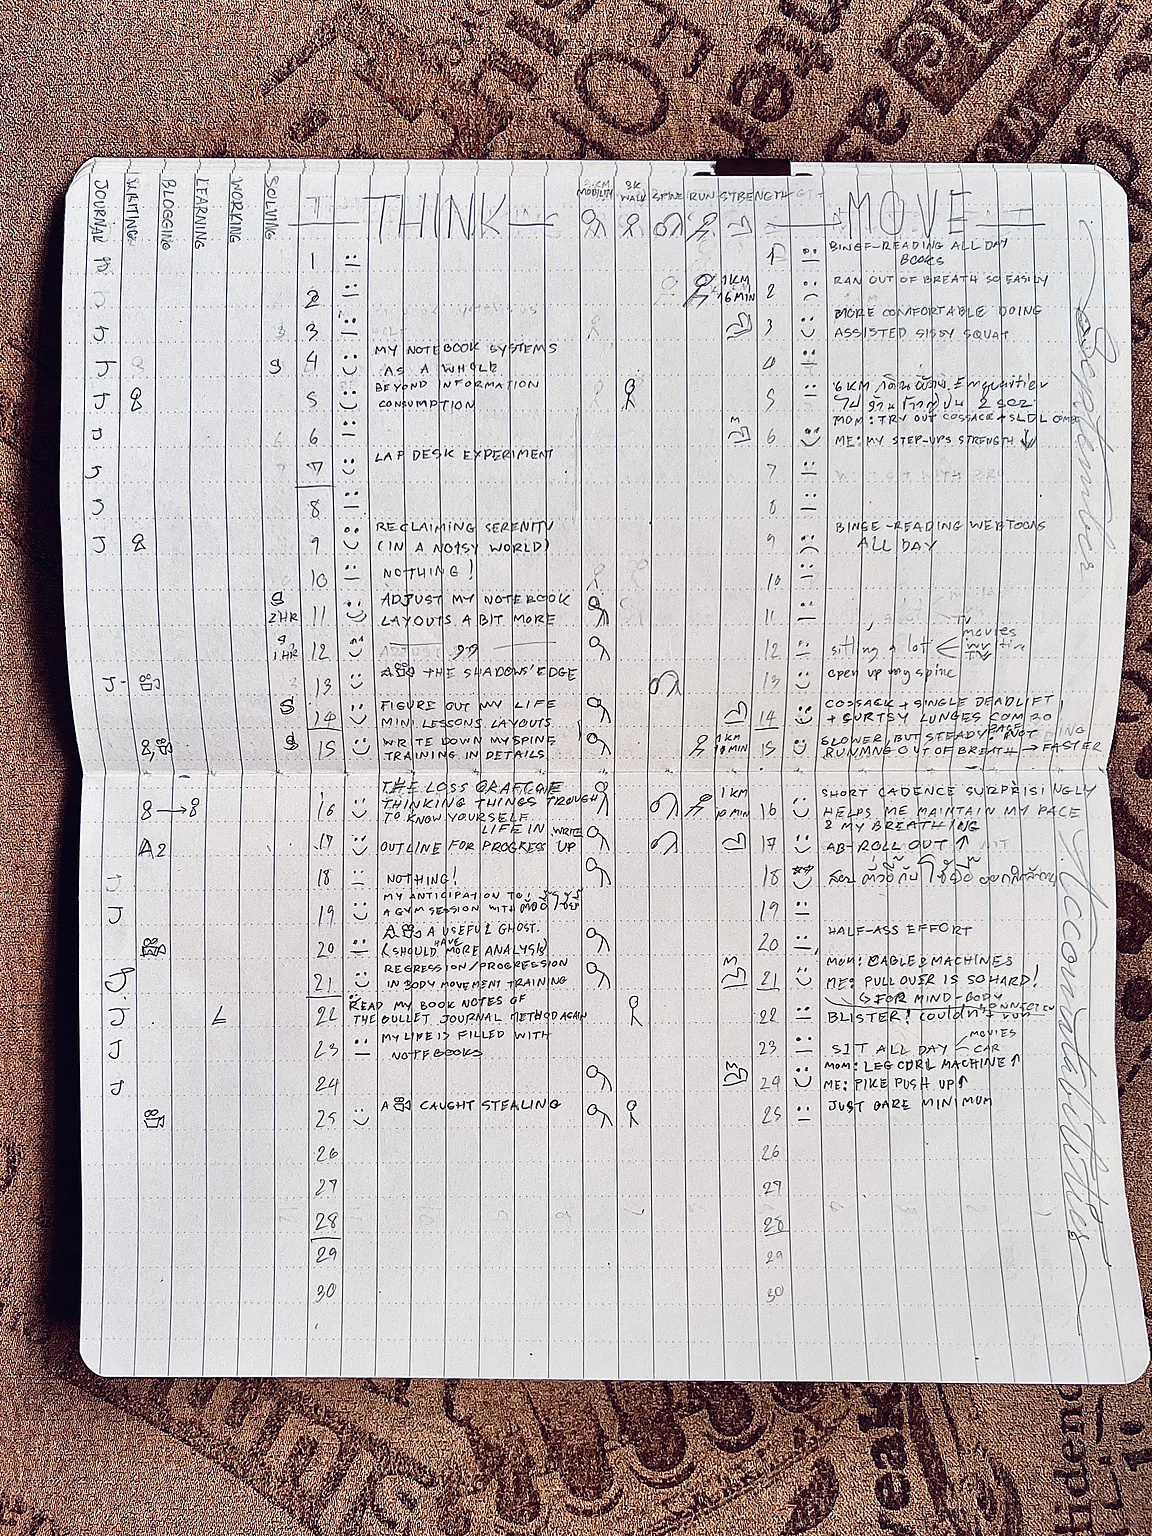 JOURNAL
WRITING
BLOGGING
LEARNING
WORKING
SOLVING
THINK
MOBILITY
8K WALK
SPINE
RUN
STRENGTH
MOVE
September
Accountabilities
1 BINGE-READING ALL DAY
BOOKS
2 1KM
16MIN
2 RAN OUT OF BREATH SO EASILY
3 J
3 MORE COMFORTABLE DOING
ASSISTED SISSY SQUAT
J S 4 MY NOTEBOOK SYSTEMS
AS A WHOLE
4
J 8 5 BEYOND INFORMATION
CONSUMPTION
5 6KM
6
6 MOM: TRY OUT COSSACK + SLDL COMBO
ME: MY STEP-UPS STRENGTH ↓
7 LAP DESK EXPERIMENT
7
8
8
J 8 9 RECLAIMING SERENITY
(IN A NOISY WORLD)
9 BINGE-READING WEBTOONS
ALL DAY
10 NOTHING!
10
S
2HR 11 ADJUST MY NOTEBOOK
LAYOUTS A BIT MORE
11
S
1HR 12
12 sitting a lot < movies
TV
J 13 A THE SHADOWS' EDGE
13 open up my spine
S 14 FIGURE OUT MY LIFE
MINI LESSONS LAYOUTS
14 COSSACK + SINGLE DEADLIFT
+ CURTSY LUNGES COMBO
8, S 15 WRITE DOWN MY SPINE
TRAINING IN DETAILS
1KM
15 SLOWER, BUT STEADY PACE. NOT
RUNNING OUT OF BREATH → FASTER
8 → 8 16 THE LOSS OF
THINKING THINGS TROUGH
TO KNOW YOURSELF
1KM
10MIN
16 SHORT CADENCE SURPRISINGLY
HELPS ME MAINTAIN MY PACE
& MY BREATHING
A2 17 OUTLINE FOR LIFE IN PROGRESS WRITE UP
17 AB-ROLL OUT ↑
J 18 NOTHING!
18
J 19 MY ANTICIPATION TO
A GYM SESSION WITH
19
20 A A USEFUL GHOST.
(SHOULD HAVE MORE ANALYSIS)
20 HALF-ASS EFFORT
J 21 REGRESSION/PROGRESSION
IN BODY MOVEMENT TRAINING
21 MOM: CABLE MACHINES
ME: PULLOVER IS SO HARD!
↳ FOR MIND-BODY
CONNECTION
J L 22 READ MY BOOK NOTES OF
THE BULLET JOURNAL METHOD AGAIN
22 BLISTER! couldn't run
J 23 MY LIFE IS FILLED WITH
NOTEBOOKS
23 SIT ALL DAY < MOVIES
CAR
J 24
24 MOM: LEG CURL MACHINE ↑
ME: PIKE PUSH UP ↑
25 A CAUGHT STEALING
25 JUST BARE MINIMUM
26 26
27 27
28 28
29 29
30 30